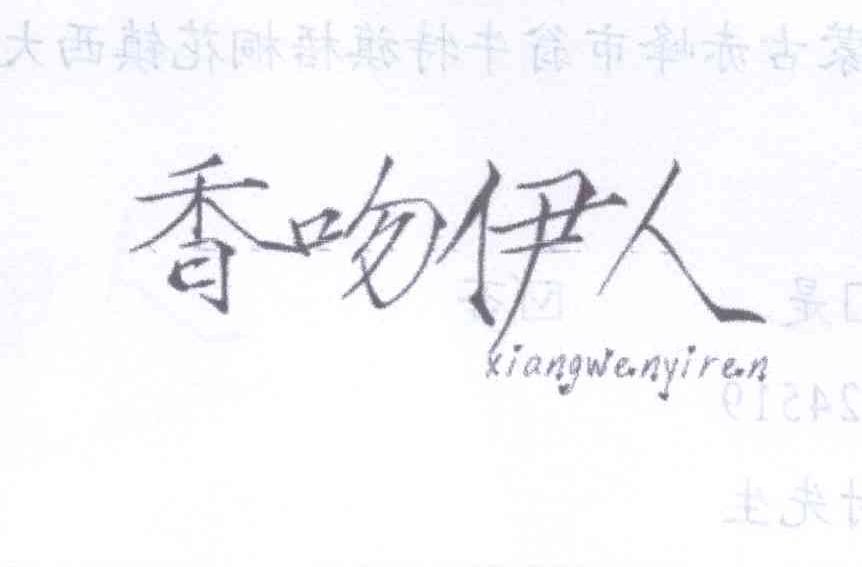 蒙古赤峰市翁牛特旗梧桐花镇西大
香吻伊人
是
否
xiangwenyiren
24519
先生